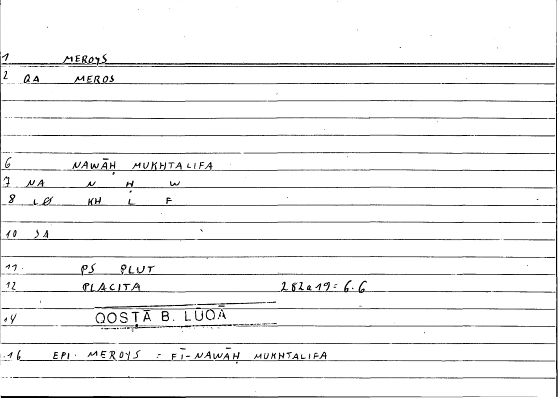 1 MEROYS
2 QA MEROS
6 NAWĀḤ MUKHTALIFA
7 NA N Ḥ W
8 LØ KH L F
10 JA
11 PS PLUT
12 PLACITA 282a19 = 6.6
14 QOSṬĀ B. LŪQĀ
16 EPI MEROYS = FĪ-NAWĀḤ MUKHTALIFA